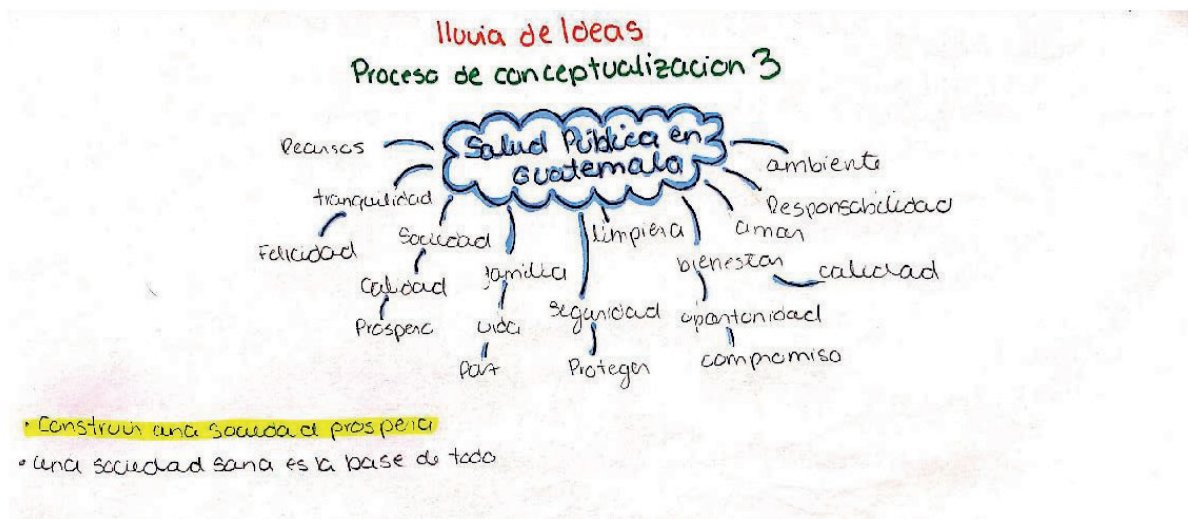 lluvia de Ideas
Proceso de conceptualizacion 3
Salud Pública en
Guatemala
Recursos
tranquilidad
Felicidad
Sociedad
Calidad
Prospera
familia
vida
Paz
seguridad
Proteger
limpieza
bienestar
calidad
oportunidad
compromiso
amar
Responsabilidad
ambiente
• Construir una sociedad prospera
• una sociedad sana es la base de todo